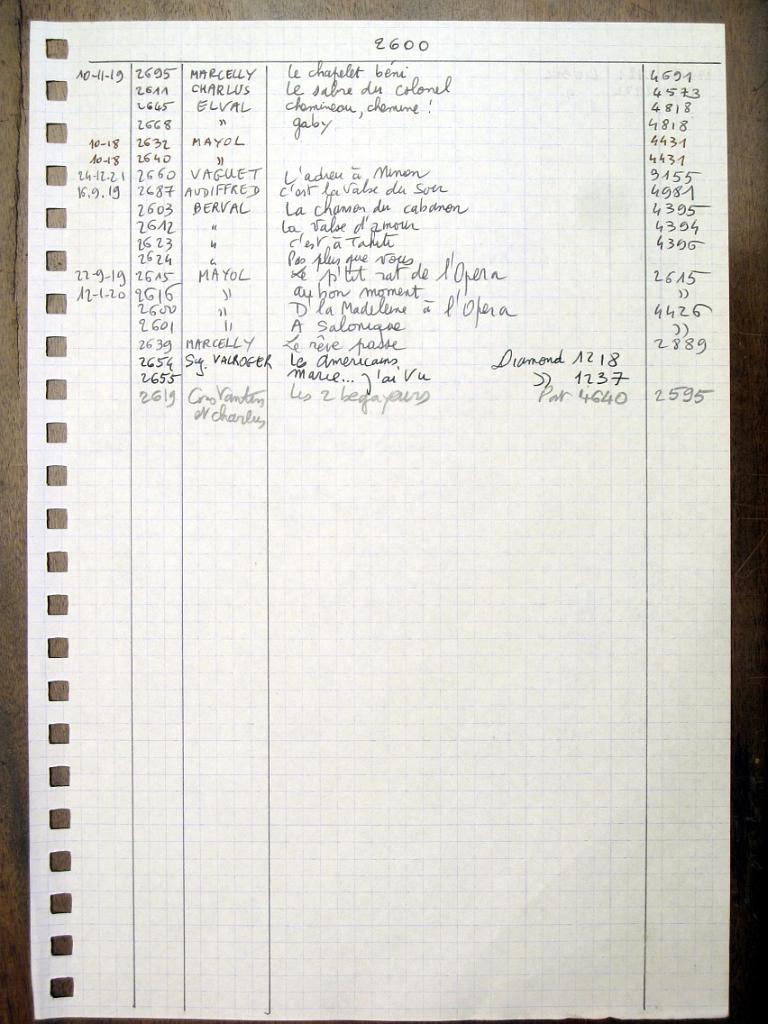 2600
10-11-19 2695 MARCELLY Le chapelet béni 4691
2611 CHARLUS Le sabre du colonel 4573
2645 ELVAL chemineau, chemine ! 4818
2668 " gaby 4818
10-18 2632 MAYOL 4431
10-18 2640 " 4431
24-12-21 2660 VAGUET L'adieu à Ninon 3155
16.9.19 2687 AUDIFFRED c'est la Valse du Soir 4981
2603 BERVAL La chanson du cabanon 4395
2612 " La Valse d'amour 4394
2623 " C'est à Tahiti 4396
2624 " Pas plus que vous
22-9-19 2615 MAYOL Le p'tit rat de l'Opera 2615
12-1-20 2616 " au bon moment "
2600 " D'la Madeleine à l'Opera 4426
2601 " A Salonique "
2639 MARCELLY Le rêve passe 2889
2654 Sig. VALROGER Les Américains Diamond 1218
2655 Marie... j'ai Vu " 1237
2619 Constantin Les 2 begayeurs Pat 4640 2595
et charlus